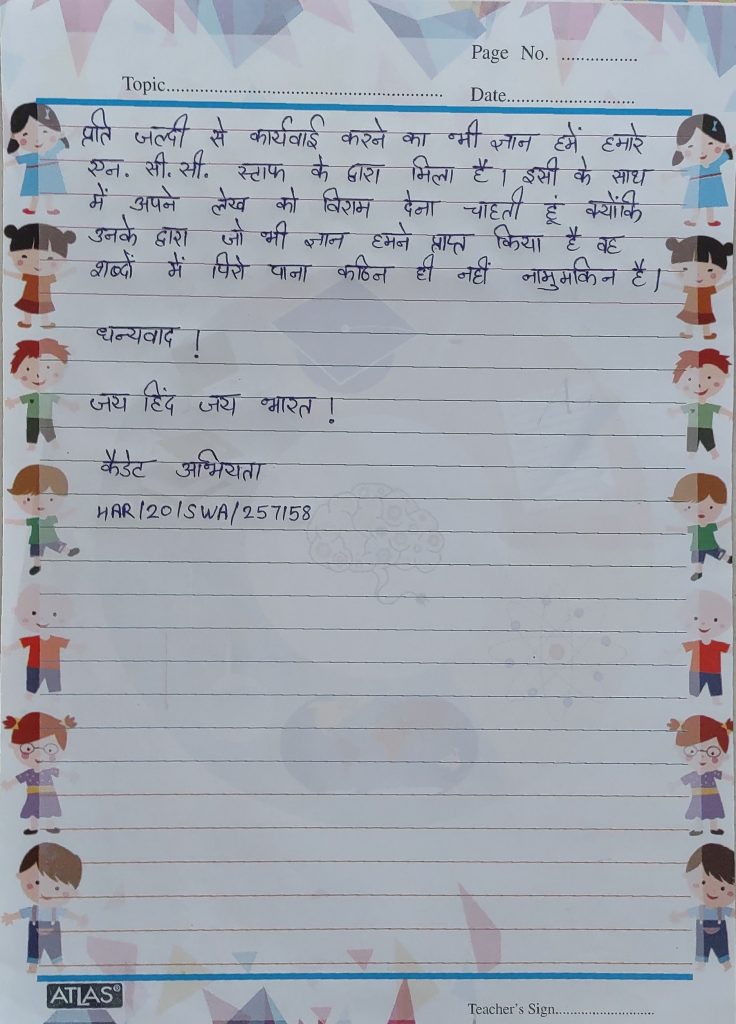 Page No. ................
Topic..........................................................
Date...........................
प्रति जल्दी से कार्यवाई करने का भी ज्ञान हमें हमारे
एन. सी. सी. स्टाफ के द्वारा मिला है। इसी के साथ
में अपने लेख को विराम देना चाहती हूं क्योंकि
उनके द्वारा जो भी ज्ञान हमने प्राप्त किया है वह
शब्दों में पिरो पाना कठिन ही नहीं नामुमकिन है।
धन्यवाद !
जय हिंद जय भारत !
कैडेट अभियता
HAR/20/SWA/257158
ATLAS®
Teacher's Sign..........................